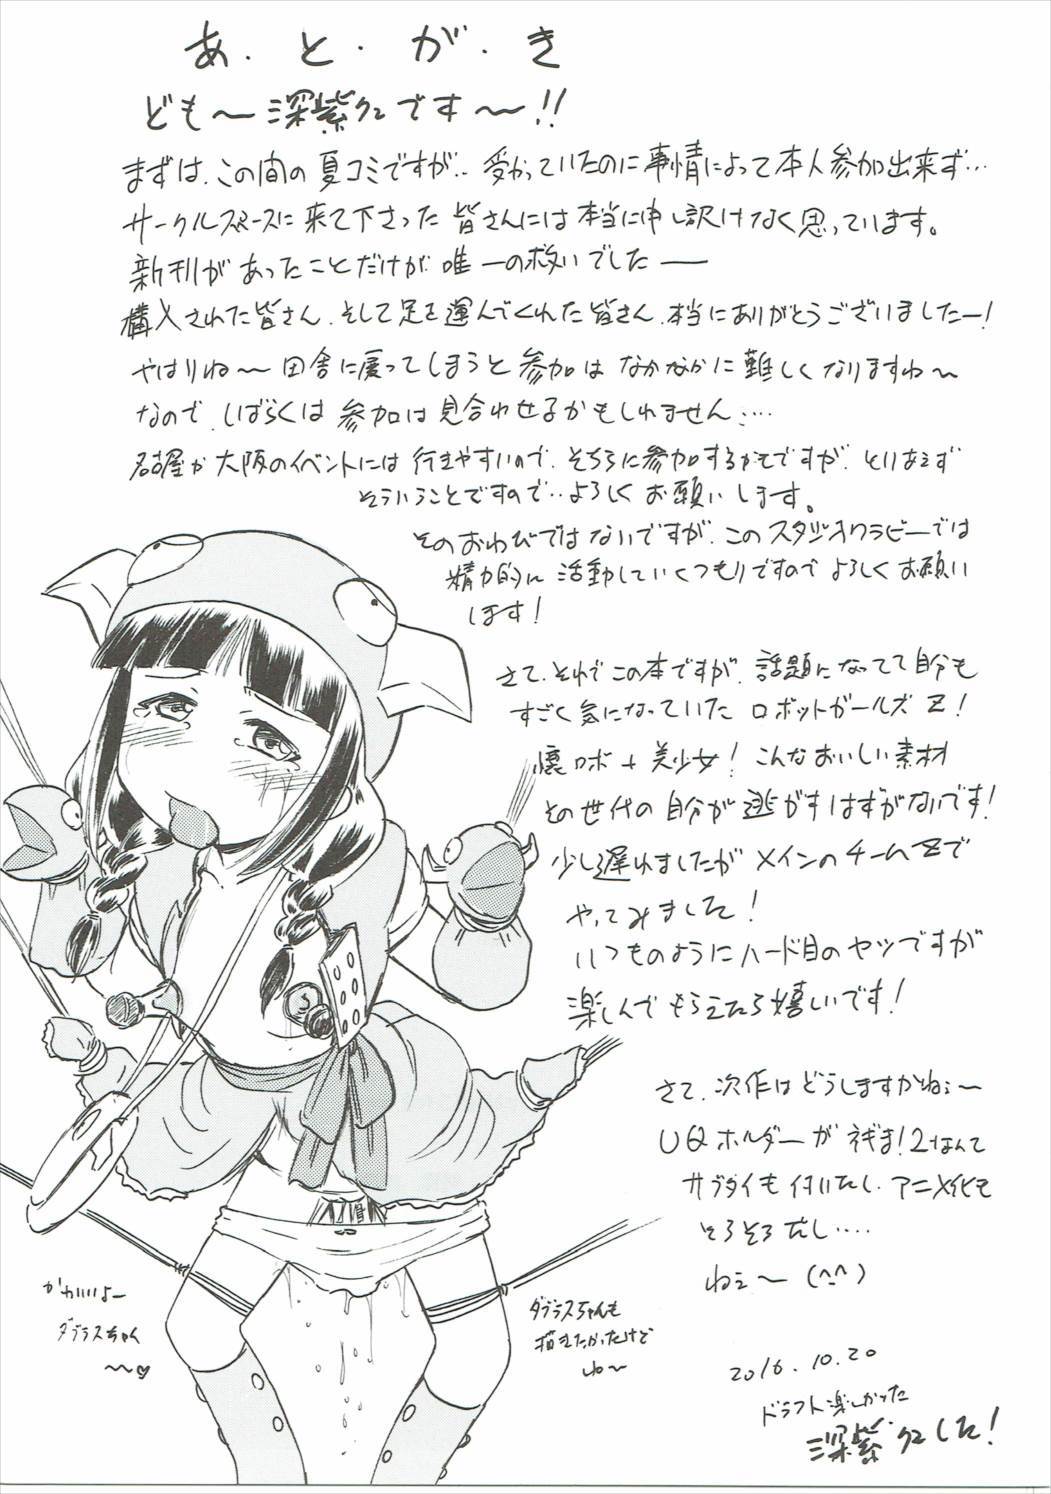 あ・と・が・き
ども〜深紫クロです〜!!
まずは、この間の夏コミですが‥受かっていたのに事情によって本人参加出来ず…
サークルスペースに来て下さった皆さんには本当に申し訳けなく思っています。
新刊があったことだけが唯一の救いでした――
購入された皆さん、そして足を運んでくれた皆さん、本当にありがとうございましたー!
やはりね〜田舎に戻ってしまうと参加はなかなかに難しくなりますね〜
なので、しばらくは参加は見合わせるかもしれません….
名古屋か大阪のイベントには行きやすいので、そちらに参加するかもですが、とりあえず
そういうことですので‥よろしくお願いします。
そのおわびではないですが、このスタジオクラビーでは
精力的に活動していくつもりですのでよろしくお願い
します!
さて、それでこの本ですが、話題になってて自分も
すごく気になっていたロボットガールズZ!
懐ロボ+美少女!こんなおいしい素材
その世代の自分が逃がすはずがないです!
少し遅れましたがメインのチームZで
やってみました!
いつものようにハード目のヤツですが
楽しんでもらえたら嬉しいです!
さて、次作はどうしますかねぇ〜
UQホルダーがネギま!2なんて
サブタイも付いたし、アニメ化も
そろそろだし….
ねぇ〜(^-^)
かわいいよー
ダブラスちゃん
〜〜♡
ダブラスちゃんも
描きたかったけど
ね〜
2016.10.20
ドラフト楽しかった
深紫クロした!